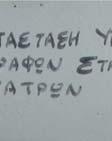 ΤΑΞΤΑΣΗ Υ
ΡΑΦΩΝ ΣΤ
ΑΤΡΩΝ